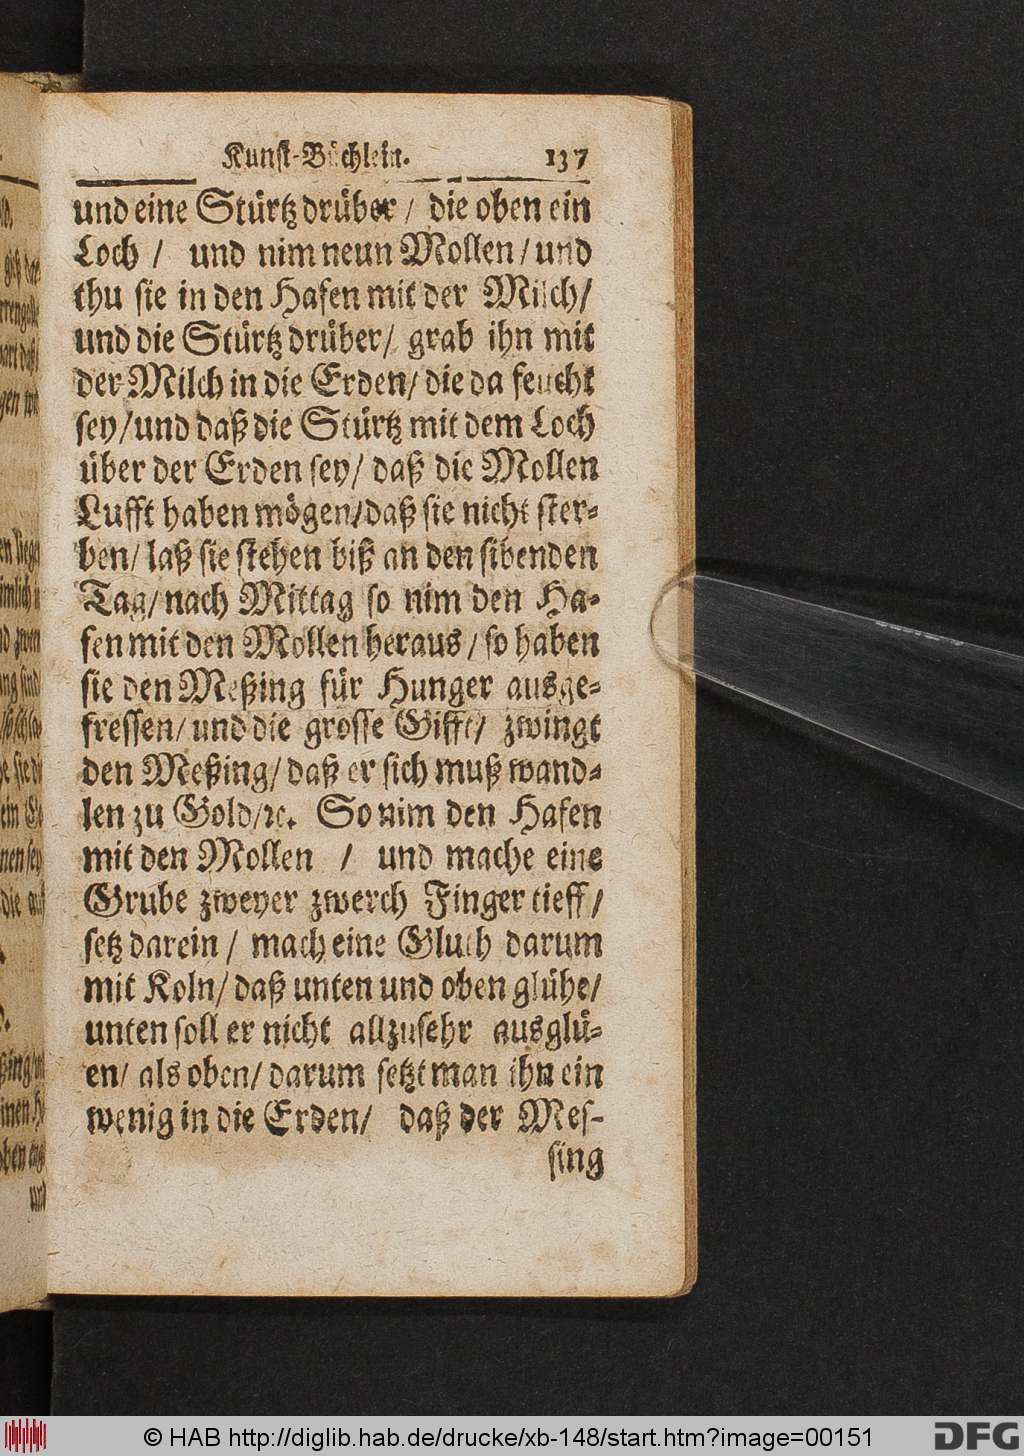 Kunst-Büchlein. 137
und eine Stürtz drüber / die oben ein
Loch / und nim neun Mollen / und
thu sie in den Hafen mit der Milch /
und die Stürtz drüber / grab ihn mit
der Milch in die Erden / die da feucht
sey / und daß die Stürtz mit dem Loch
über der Erden sey / daß die Mollen
Lufft haben mögen / daß sie nicht ster-
ben / laß sie stehen biß an den sibenden
Tag / nach Mittag so nim den Ha-
fen mit den Mollen heraus / so haben
sie den Meßing für Hunger ausge-
fressen / und die grosse Gifft / zwingt
den Meßing / daß er sich muß wand-
len zu Gold / ꝛc. So nim den Hafen
mit den Mollen / und mache eine
Grube zweyer zwerch Finger tieff /
setz darein / mach eine Gluth darum
mit Koln / daß unten und oben glühe /
unten soll er nicht allzusehr ausglü-
en / als oben / darum setzt man ihn ein
wenig in die Erden / daß der Mes-
sing
© HAB http://diglib.hab.de/drucke/xb-148/start.htm?image=00151
DFG